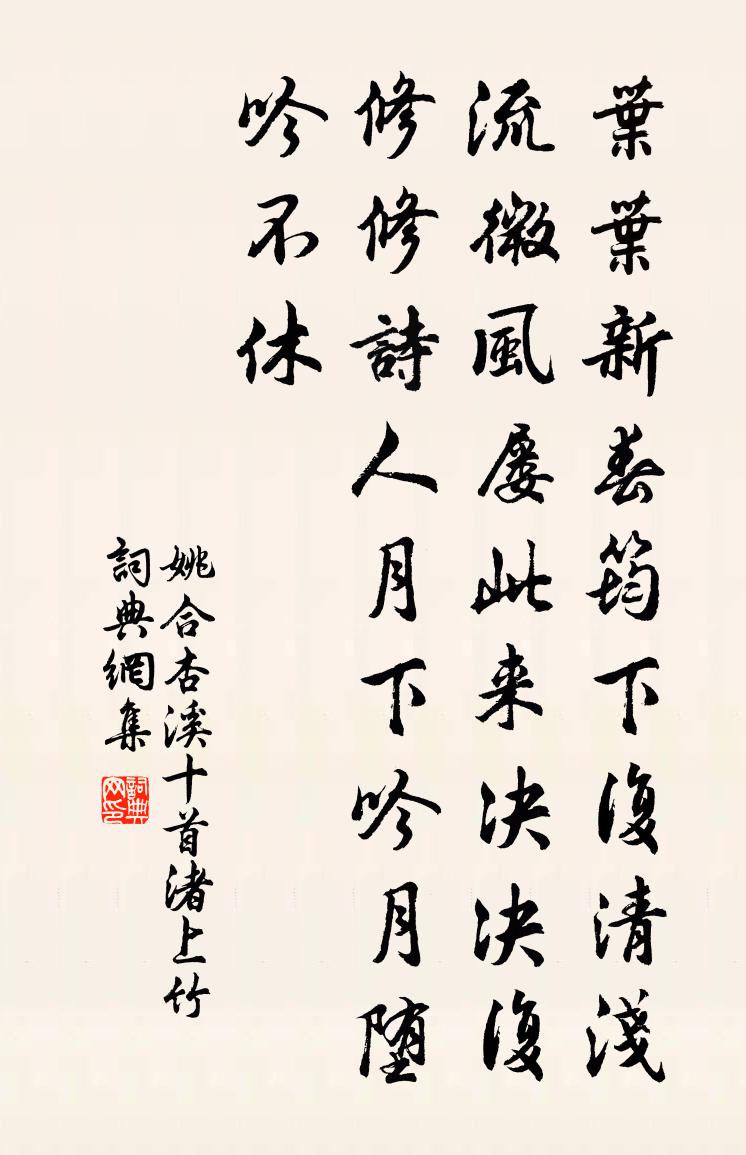 葉葉新春筠下復清淺
流微風屢此来決決復
修修詩人月下吟月堕
吟不休
姚合杏溪十首渚上竹
詞典網集
詞典网印